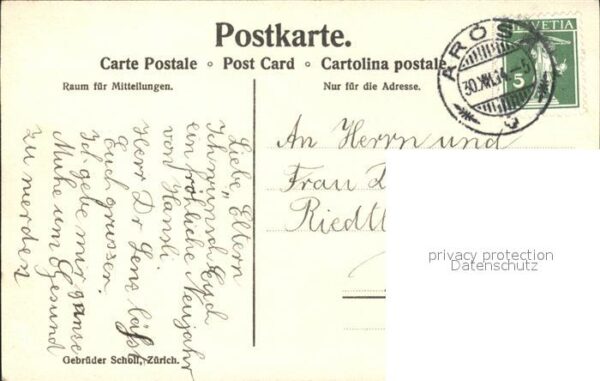 Postkarte.
Carte Postale ∘ Post Card ∘ Cartolina postale
Raum für Mitteilungen.
Nur für die Adresse.
HELVETIA
5
30.XII
Liebe Eltern
Ich wünsch Euch
ein fröhliche Neujahr
von Hansli.
Herr Dr Lenz lässt
Euch grüssen.
Ich gebe mir ganse
Muhe um Gesund
zu werden
An Herrn und
Frau D
Riedtl
privacy protection
Datenschutz
Gebrüder Scholl, Zürich.